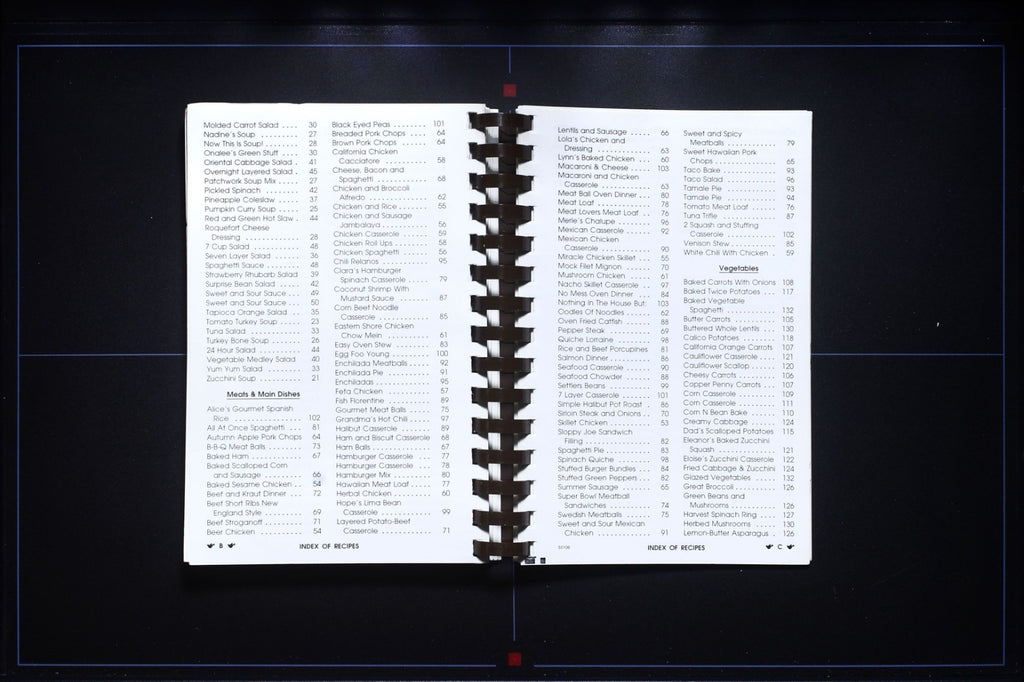 Molded Carrot Salad .... 30
Nadine's Soup .......... 27
Now This Is Soup! ....... 28
Onalee's Green Stuff .... 30
Oriental Cabbage Salad . 41
Overnight Layered Salad . 45
Patchwork Soup Mix ..... 27
Pickled Spinach ......... 42
Pineapple Coleslaw ..... 37
Pumpkin Curry Soup .... 25
Red and Green Hot Slaw . 44
Roquefort Cheese
Dressing .............. 28
7 Cup Salad ............ 48
Seven Layer Salad ...... 36
Spaghetti Sauce ........ 48
Strawberry Rhubarb Salad 39
Surprise Bean Salad ..... 42
Sweet and Sour Sauce ... 49
Sweet and Sour Sauce ... 50
Tapioca Orange Salad .. 35
Tomato Turkey Soup ..... 23
Tuna Salad ............. 33
Turkey Bone Soup ....... 26
24 Hour Salad .......... 44
Vegetable Medley Salad 40
Yum Yum Salad ........ 33
Zucchini Soup .......... 21
Meats & Main Dishes
Alice's Gourmet Spanish
Rice .................. 102
All At Once Spaghetti ... 81
Autumn Apple Pork Chops 64
B-B-Q Meat Balls ........ 73
Baked Ham ............ 67
Baked Scalloped Corn
and Sausage .......... 66
Baked Sesame Chicken .. 54
Beef and Kraut Dinner ... 72
Beef Short Ribs New
England Style .......... 69
Beef Stroganoff .......... 71
Beer Chicken ........... 54
Black Eyed Peas ........ 101
Breaded Pork Chops .... 64
Brown Pork Chops ...... 64
California Chicken
Cacciatore ............ 58
Cheese, Bacon and
Spaghetti ............. 68
Chicken and Broccoli
Alfredo ............... 62
Chicken and Rice ....... 55
Chicken and Sausage
Jambalaya ............ 56
Chicken Casserole ...... 59
Chicken Roll Ups ........ 58
Chicken Spaghetti ...... 56
Chili Relanos ............ 95
Clara's Hamburger
Spinach Casserole ...... 79
Coconut Shrimp With
Mustard Sauce ........ 87
Corn Beef Noodle
Casserole ............. 85
Eastern Shore Chicken
Chow Mein ............ 61
Easy Oven Stew ......... 83
Egg Foo Young .......... 100
Enchilada Meatballs ..... 92
Enchilada Pie ........... 91
Enchiladas .............. 95
Feta Chicken ........... 57
Fish Florentine ........... 89
Gourmet Meat Balls ..... 75
Grandma's Hot Chili ..... 97
Halibut Casserole ....... 89
Ham and Biscuit Casserole 68
Ham Balls .............. 67
Hamburger Casserole ... 77
Hamburger Casserole ... 78
Hamburger Mix ......... 80
Hawaiian Meat Loaf ..... 77
Herbal Chicken ......... 60
Hope's Lima Bean
Casserole ............. 99
Layered Potato-Beef
Casserole ............. 71
B
INDEX OF RECIPES
Lentils and Sausage ..... 66
Lola's Chicken and
Dressing .............. 63
Lynn's Baked Chicken ... 60
Macaroni & Cheese ..... 103
Macaroni and Chicken
Casserole ............. 63
Meat Ball Oven Dinner .. 80
Meat Loaf .............. 78
Meat Lovers Meat Loaf .. 76
Merle's Chalupe ........ 96
Mexican Casserole ...... 92
Mexican Chicken
Casserole ............. 90
Miracle Chicken Skillet ... 55
Mock Filet Mignon ...... 70
Mushroom Chicken ..... 61
Nacho Skillet Casserole .. 97
No Mess Oven Dinner ... 84
Nothing In The House But: 103
Oodles Of Noodles ...... 62
Oven Fried Catfish ...... 88
Pepper Steak ........... 69
Quiche Lorraine ......... 98
Rice and Beef Porcupines 81
Salmon Dinner .......... 86
Seafood Casserole ...... 90
Seafood Chowder ...... 88
Settlers Beans .......... 99
7 Layer Casserole ....... 101
Simple Halibut Pot Roast . 86
Sirloin Steak and Onions .. 70
Skillet Chicken .......... 53
Sloppy Joe Sandwich
Filling ................. 82
Spaghetti Pie ........... 83
Spinach Quiche ......... 98
Stuffed Burger Bundles ... 84
Stuffed Green Peppers .. 82
Summer Sausage ....... 65
Super Bowl Meatball
Sandwiches ........... 74
Swedish Meatballs ....... 75
Sweet and Sour Mexican
Chicken .............. 91
Sweet and Spicy
Meatballs ............. 79
Sweet Hawaiian Pork
Chops ................ 65
Taco Bake ............. 93
Taco Salad ............. 96
Tamale Pie ............. 93
Tamale Pie ............. 94
Tomato Meat Loaf ...... 76
Tuna Trifle .............. 87
2 Squash and Stuffing
Casserole ............. 102
Venison Stew ........... 85
White Chili With Chicken . 59
Vegetables
Baked Carrots With Onions 108
Baked Twice Potatoes ... 117
Baked Vegetable
Spaghetti ............. 132
Butter Carrots ........... 105
Buttered Whole Lentils ... 130
Calico Potatoes ......... 118
California Orange Carrots 107
Cauliflower Casserole ... 121
Cauliflower Scallop ...... 120
Cheesy Carrots ......... 106
Copper Penny Carrots ... 107
Corn Casserole ......... 109
Corn Casserole ......... 111
Corn N Bean Bake ...... 110
Creamy Cabbage ...... 124
Dad's Scalloped Potatoes 115
Eleanor's Baked Zucchini
Squash ............... 121
Eloise's Zucchini Casserole 122
Fried Cabbage & Zucchini 124
Glazed Vegetables ...... 132
Great Broccoli .......... 126
Green Beans and
Mushrooms ........... 126
Harvest Spinach Ring .... 127
Herbed Mushrooms ..... 130
Lemon-Butter Asparagus . 126
INDEX OF RECIPES
C